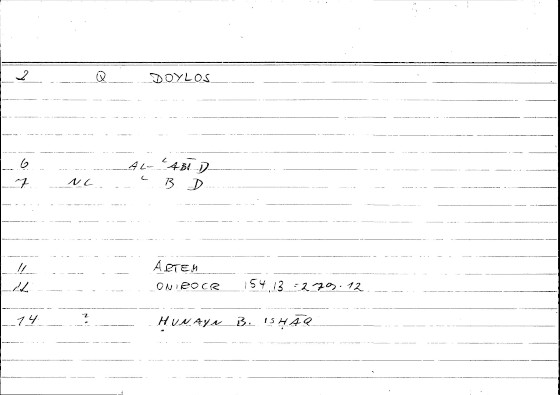 2 Q DOYLOS
6 AL-ʿABĪD
7 NC ʿ B D
11 ARTEM
12 ONIROCR 154,13 = 279.12
14 ? ḤUNAYN B. ISḤĀQ